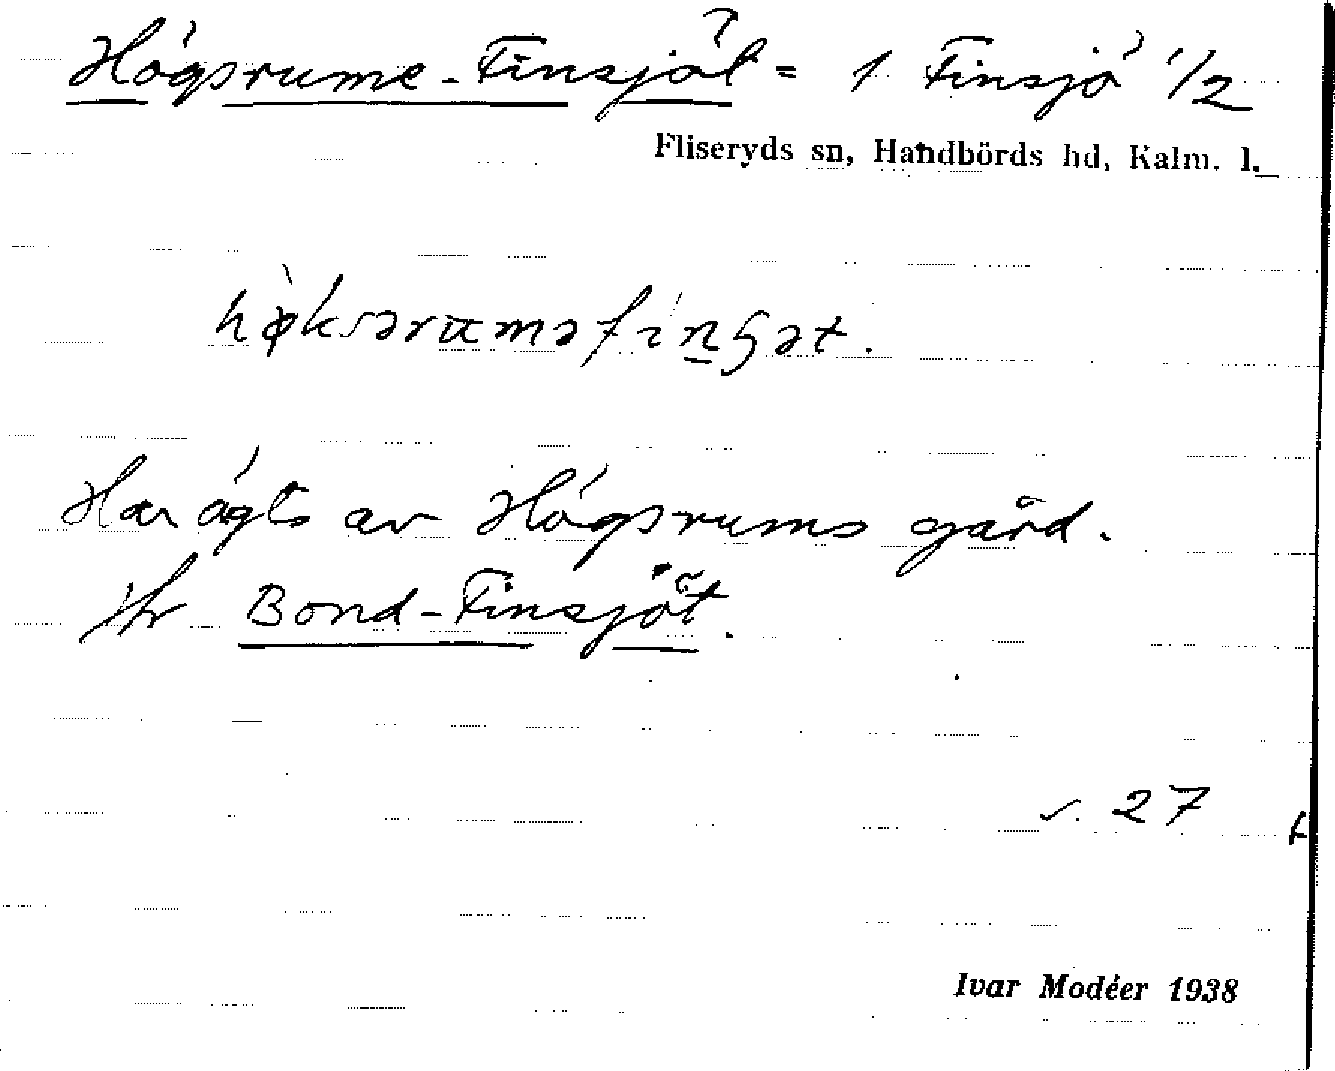 Högsrume-Finsjöt = 1 Finsjö 1/2
Fliseryds sn, Handbörds hd, Kalm. l.
Har ägts av Högsrums gård.
Jfr Bond-Finsjöt.
s. 27
Ivar Modéer 1938